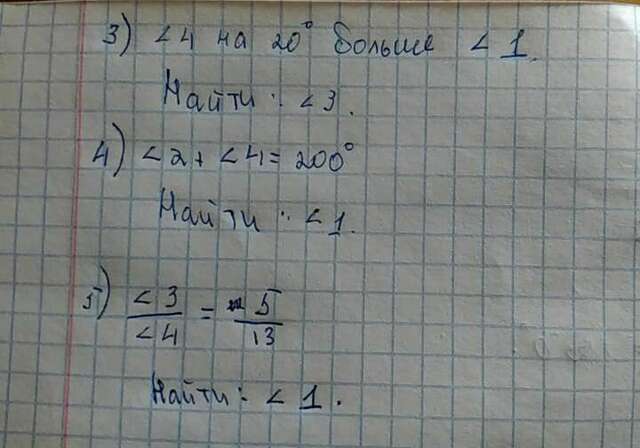 3) <4 на 20° больше <1.
Найти: <3.
4) <2+ <4= 200°
Найти: <1.
5) <3/<4 = 5/13
Найти: <1.